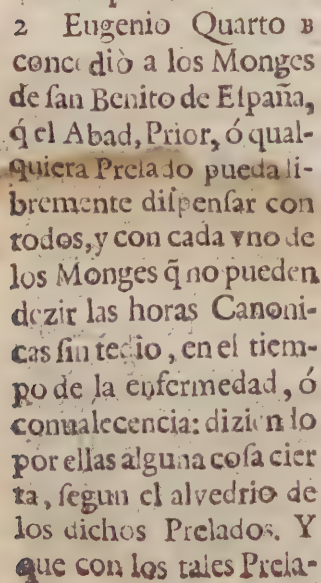 2 Eugenio Quarto B
concediò a los Monges
de ſan Benito de Eſpaña,
q̃ el Abad, Prior, ó qual-
quiera Prelado pueda li-
bremente diſpenſar con
todos, y con cada vno de
los Monges q̃ no pueden
dezir las horas Canoni-
cas ſin tedio, en el tiem-
po de la enfermedad, ó
conualecencia: diziendo
por ellas alguna coſa cier
ta, ſegun el alvedrio de
los dichos Prelados. Y
que con los tales Prela-